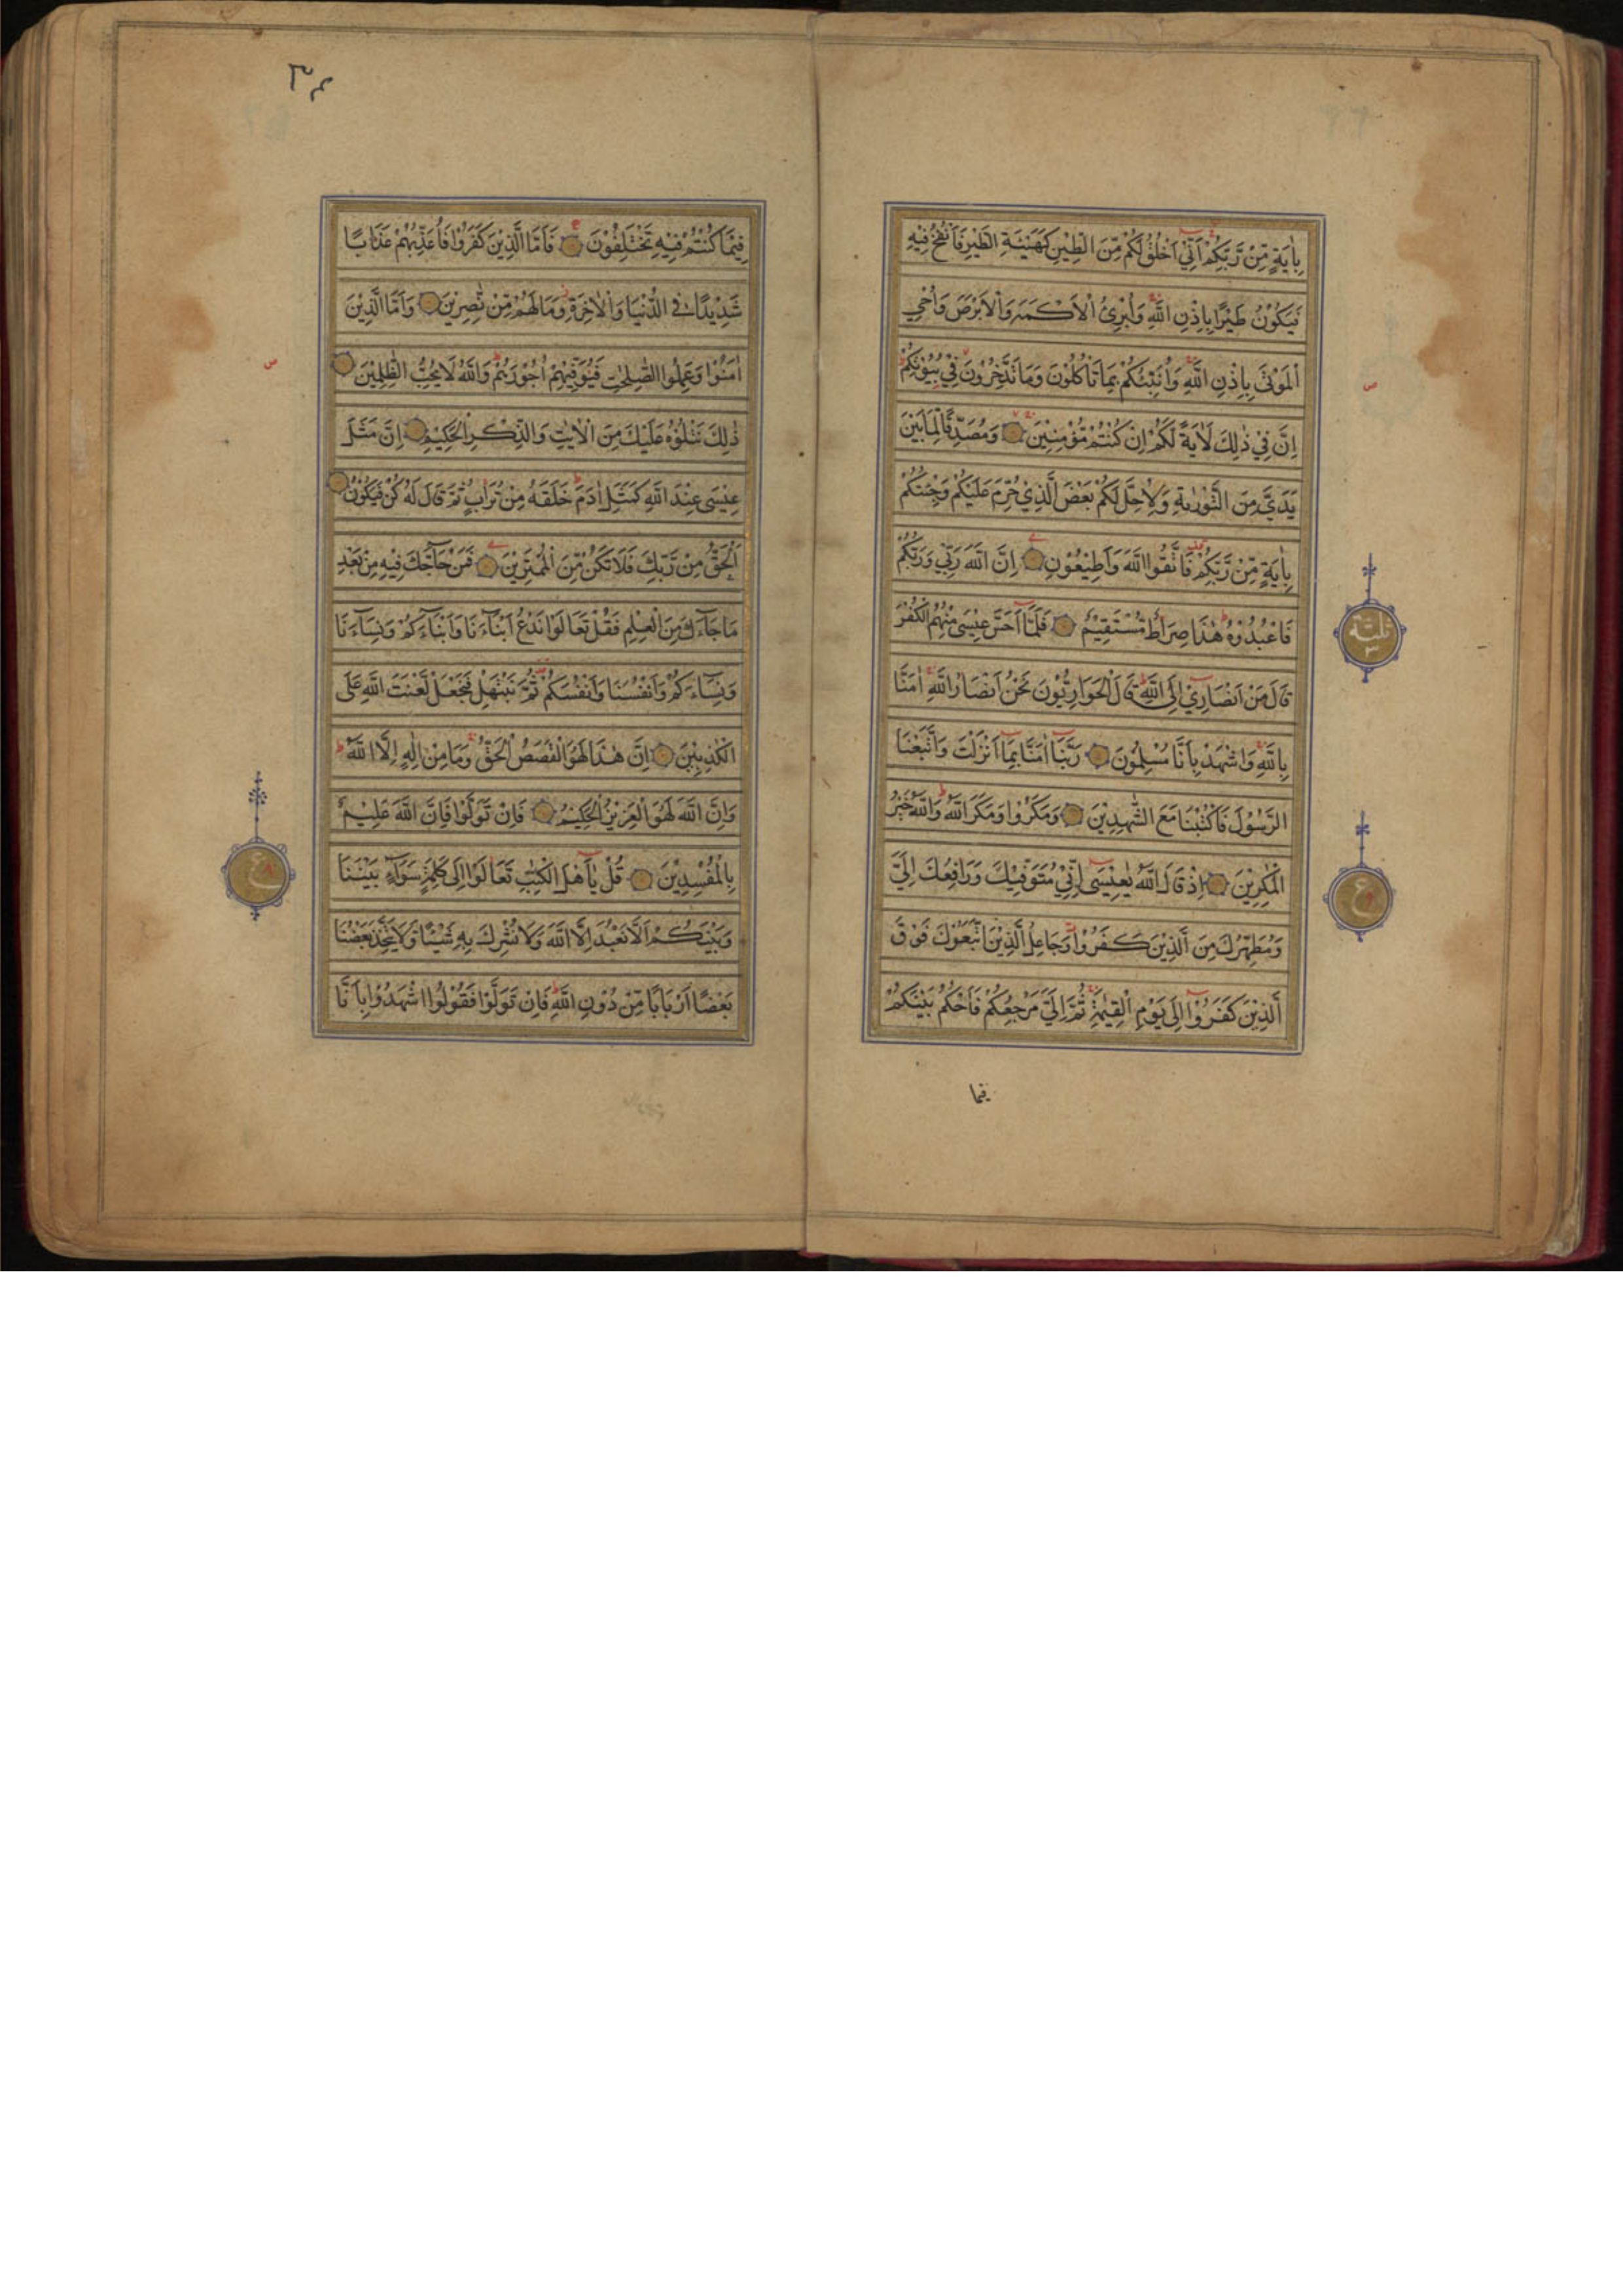 بِاٰيَةٍ مِّنْ رَّبِّكُمْ اَنِّيْٓ اَخْلُقُ لَكُمْ مِّنَ الطِّيْنِ كَهَيْئَةِ الطَّيْرِ فَاَنْفُخُ فِيْهِ
فَيَكُوْنُ طَيْرًا بِاِذْنِ اللّٰهِ وَاُبْرِئُ الْاَكْمَهَ وَالْاَبْرَصَ وَاُحْيِ
الْمَوْتٰى بِاِذْنِ اللّٰهِ وَاُنَبِّئُكُمْ بِمَا تَاْكُلُوْنَ وَمَا تَدَّخِرُوْنَ فِيْ بُيُوْتِكُمْ ط
اِنَّ فِيْ ذٰلِكَ لَاٰيَةً لَّكُمْ اِنْ كُنْتُمْ مُّؤْمِنِيْنَ وَمُصَدِّقًا لِّمَا بَيْنَ
يَدَيَّ مِنَ التَّوْرٰىةِ وَلِاُحِلَّ لَكُمْ بَعْضَ الَّذِيْ حُرِّمَ عَلَيْكُمْ وَجِئْتُكُمْ
بِاٰيَةٍ مِّنْ رَّبِّكُمْ فَاتَّقُوا اللّٰهَ وَاَطِيْعُوْنِ اِنَّ اللّٰهَ رَبِّيْ وَرَبُّكُمْ
فَاعْبُدُوْهُ ط هٰذَا صِرَاطٌ مُّسْتَقِيْمٌ فَلَمَّآ اَحَسَّ عِيْسٰى مِنْهُمُ الْكُفْرَ
قَالَ مَنْ اَنْصَارِيْٓ اِلَى اللّٰهِ ط قَالَ الْحَوَارِيُّوْنَ نَحْنُ اَنْصَارُ اللّٰهِ اٰمَنَّا
بِاللّٰهِ وَاشْهَدْ بِاَنَّا مُسْلِمُوْنَ رَبَّنَآ اٰمَنَّا بِمَآ اَنْزَلْتَ وَاتَّبَعْنَا
الرَّسُوْلَ فَاكْتُبْنَا مَعَ الشّٰهِدِيْنَ وَمَكَرُوْا وَمَكَرَ اللّٰهُ ط وَاللّٰهُ خَيْرُ
الْمٰكِرِيْنَ اِذْ قَالَ اللّٰهُ يٰعِيْسٰٓى اِنِّيْ مُتَوَفِّيْكَ وَرَافِعُكَ اِلَيَّ
وَمُطَهِّرُكَ مِنَ الَّذِيْنَ كَفَرُوْا وَجَاعِلُ الَّذِيْنَ اتَّبَعُوْكَ فَوْقَ
الَّذِيْنَ كَفَرُوْٓا اِلٰى يَوْمِ الْقِيٰمَةِ ثُمَّ اِلَيَّ مَرْجِعُكُمْ فَاَحْكُمُ بَيْنَكُمْ
فيما
ص
ثلثة ٣
ع
٣٤
فِيْمَا كُنْتُمْ فِيْهِ تَخْتَلِفُوْنَ فَاَمَّا الَّذِيْنَ كَفَرُوْا فَاُعَذِّبُهُمْ عَذَابًا
شَدِيْدًا فِي الدُّنْيَا وَالْاٰخِرَةِ وَمَا لَهُمْ مِّنْ نّٰصِرِيْنَ وَاَمَّا الَّذِيْنَ
اٰمَنُوْا وَعَمِلُوا الصّٰلِحٰتِ فَيُوَفِّيْهِمْ اُجُوْرَهُمْ ط وَاللّٰهُ لَا يُحِبُّ الظّٰلِمِيْنَ
ذٰلِكَ نَتْلُوْهُ عَلَيْكَ مِنَ الْاٰيٰتِ وَالذِّكْرِ الْحَكِيْمِ اِنَّ مَثَلَ
عِيْسٰى عِنْدَ اللّٰهِ كَمَثَلِ اٰدَمَ ط خَلَقَهٗ مِنْ تُرَابٍ ثُمَّ قَالَ لَهٗ كُنْ فَيَكُوْنُ
اَلْحَقُّ مِنْ رَّبِّكَ فَلَا تَكُنْ مِّنَ الْمُمْتَرِيْنَ فَمَنْ حَآجَّكَ فِيْهِ مِنْ بَعْدِ
مَا جَآءَكَ مِنَ الْعِلْمِ فَقُلْ تَعَالَوْا نَدْعُ اَبْنَآءَنَا وَاَبْنَآءَكُمْ وَنِسَآءَنَا
وَنِسَآءَكُمْ وَاَنْفُسَنَا وَاَنْفُسَكُمْ ثُمَّ نَبْتَهِلْ فَنَجْعَلْ لَّعْنَتَ اللّٰهِ عَلَى
الْكٰذِبِيْنَ اِنَّ هٰذَا لَهُوَ الْقَصَصُ الْحَقُّ وَمَا مِنْ اِلٰهٍ اِلَّا اللّٰهُ ط
وَاِنَّ اللّٰهَ لَهُوَ الْعَزِيْزُ الْحَكِيْمُ فَاِنْ تَوَلَّوْا فَاِنَّ اللّٰهَ عَلِيْمٌ
بِالْمُفْسِدِيْنَ قُلْ يٰٓاَهْلَ الْكِتٰبِ تَعَالَوْا اِلٰى كَلِمَةٍ سَوَآءٍ بَيْنَنَا
وَبَيْنَكُمْ اَلَّا نَعْبُدَ اِلَّا اللّٰهَ وَلَا نُشْرِكَ بِهٖ شَيْئًا وَّلَا يَتَّخِذَ بَعْضُنَا
بَعْضًا اَرْبَابًا مِّنْ دُوْنِ اللّٰهِ ط فَاِنْ تَوَلَّوْا فَقُوْلُوا اشْهَدُوْا بِاَنَّا
ص
ع